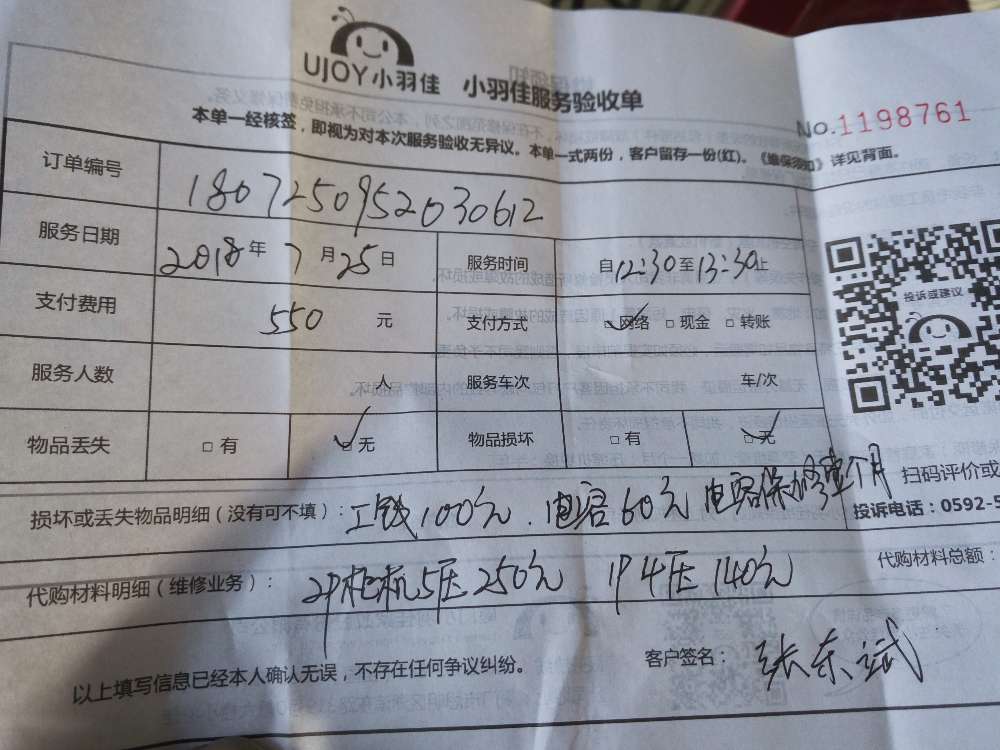 UJOY小羽佳 小羽佳服务验收单
No.1198761
本单一经核签，即视为对本次服务验收无异议。本单一式两份，客户留存一份(红)。《维保须知》详见背面。
订单编号 1807250952030612
服务日期 2018年7月25日 服务时间 自12:30至13:30止
支付费用 550元 支付方式 ☑网络 □现金 □转账
投诉或建议
服务人数 人 服务车次 车/次
物品丢失 □有 ☑无 物品损坏 □有 ☑无
扫码评价或
损坏或丢失物品明细（没有可不填）：工钱100元．电容60元 电容保修 个月
投诉电话：0592-5
代购材料明细（维修业务）：2P柜机5压250元 1P 4压140元
代购材料总额：
以上填写信息已经本人确认无误，不存在任何争议纠纷。 客户签名：张东斌